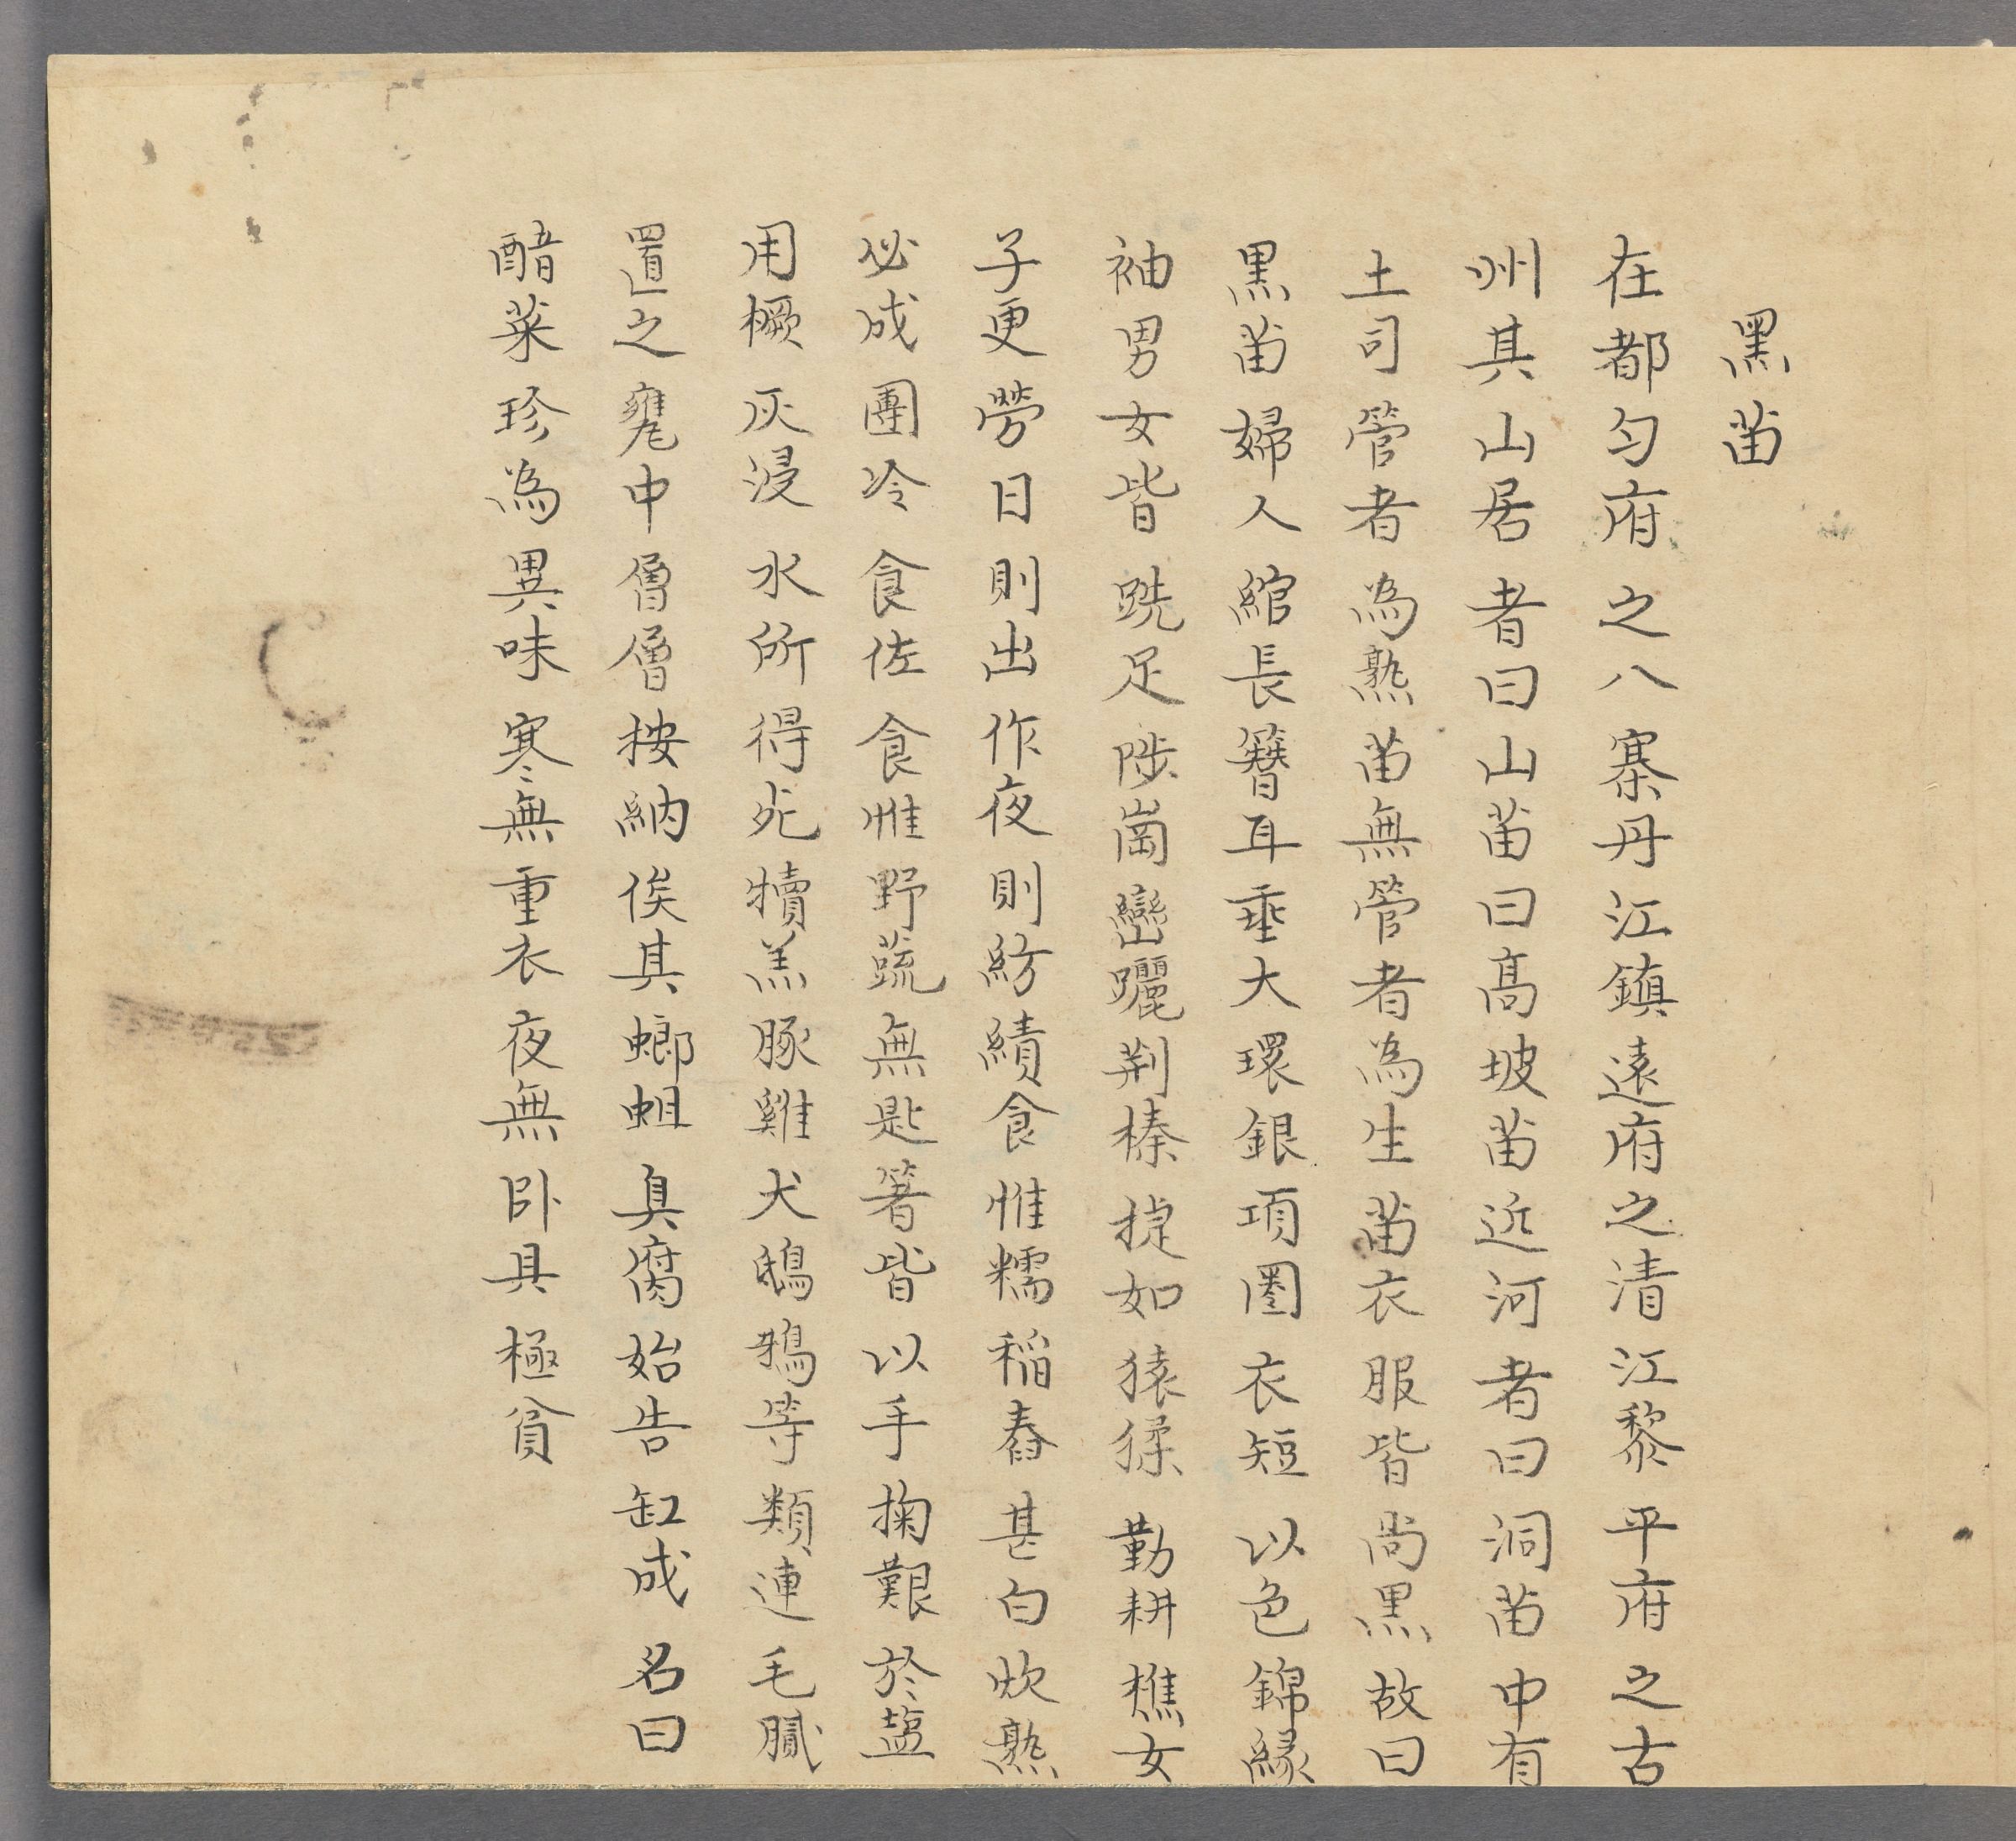 黑苗
在都匀府之八寨丹江鎮遠府之清江黎平府之古
州其山居者曰山苗曰高坡苗近河者曰洞苗中有
土司管者為熟苗無管者為生苗衣服皆尚黑故曰
黑苗婦人綰長簪耳垂大環銀項圈衣短以色錦緣
袖男女皆跣足陟崗巒躧荆榛捷如猿猱勤耕樵女
子更勞日則出作夜則紡績食惟糯稻舂甚白炊熟
必成團冷食佐食惟野蔬無匙箸皆以手掬艱於鹽
用橛灰浸水所得死犢羔豚雞犬鴟鵝等類連毛臟
置之甕中層層按納俟其螂蛆臭腐始告缸成名曰
醋菜珍為異味寒無重衣夜無卧具極貧